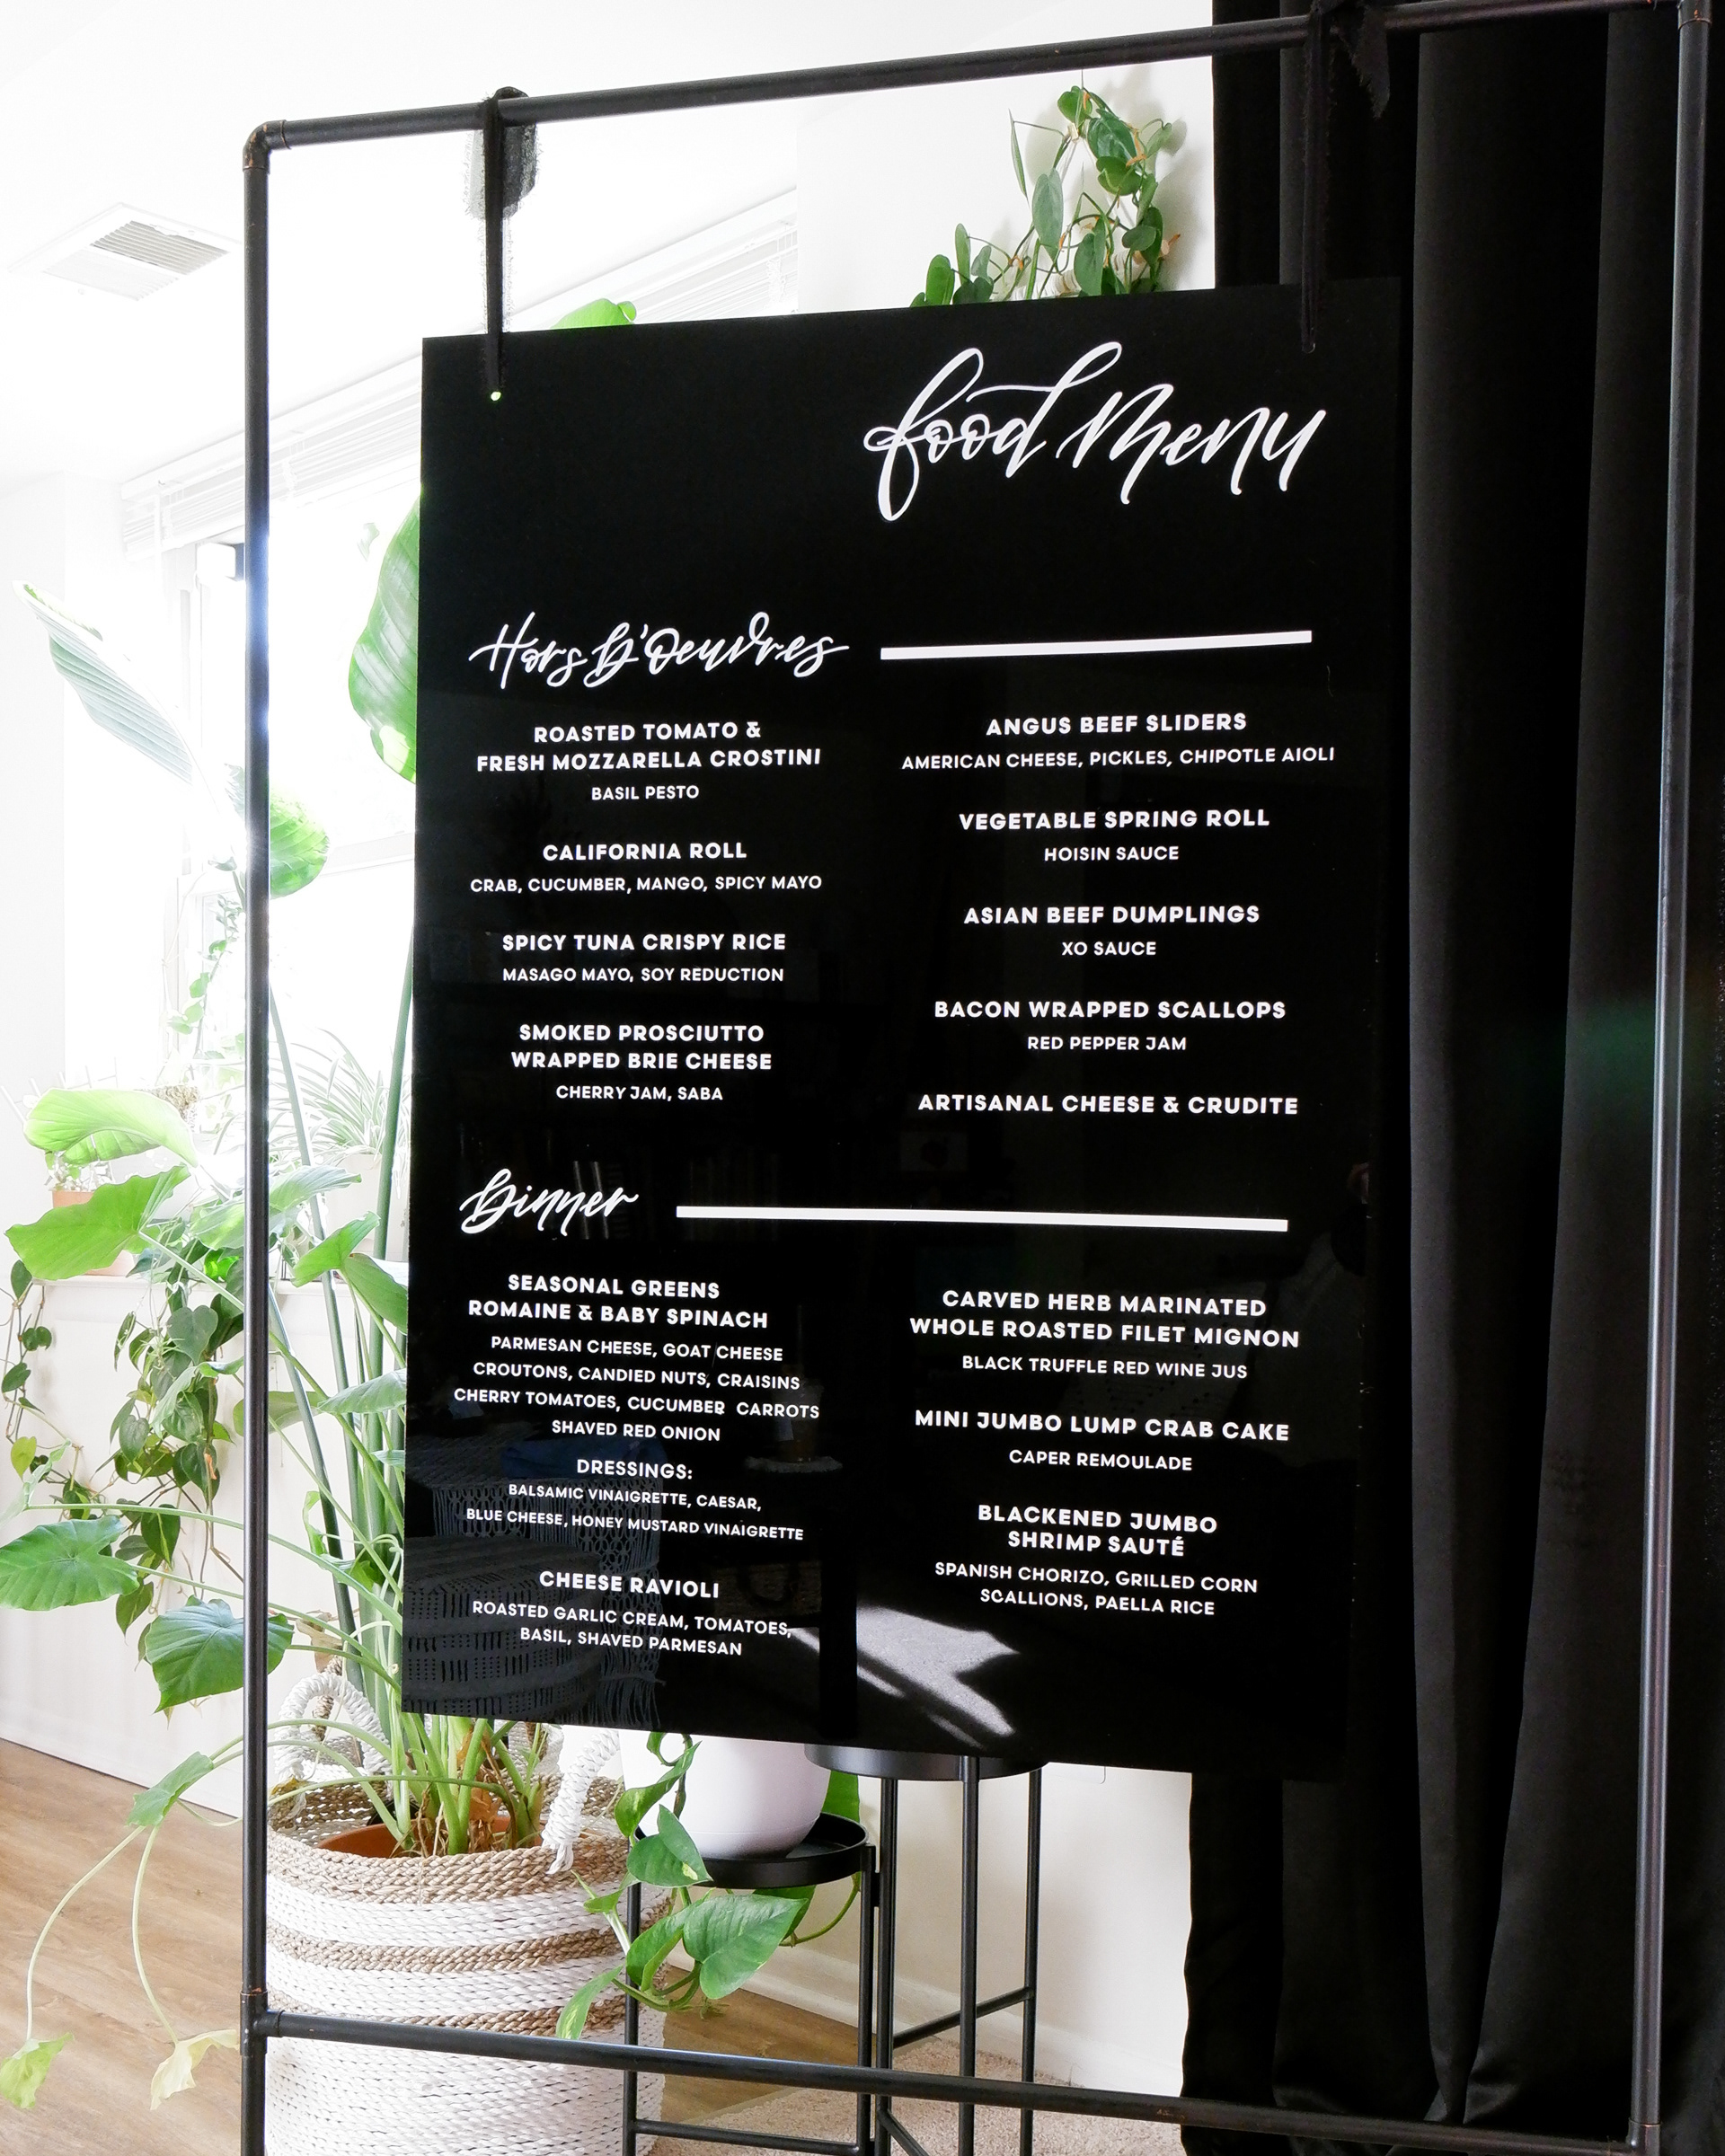 food Menu
Hors D'Oeuvres
ROASTED TOMATO &
FRESH MOZZARELLA CROSTINI
BASIL PESTO
CALIFORNIA ROLL
CRAB, CUCUMBER, MANGO, SPICY MAYO
SPICY TUNA CRISPY RICE
MASAGO MAYO, SOY REDUCTION
SMOKED PROSCIUTTO
WRAPPED BRIE CHEESE
CHERRY JAM, SABA
ANGUS BEEF SLIDERS
AMERICAN CHEESE, PICKLES, CHIPOTLE AIOLI
VEGETABLE SPRING ROLL
HOISIN SAUCE
ASIAN BEEF DUMPLINGS
XO SAUCE
BACON WRAPPED SCALLOPS
RED PEPPER JAM
ARTISANAL CHEESE & CRUDITE
Dinner
SEASONAL GREENS
ROMAINE & BABY SPINACH
PARMESAN CHEESE, GOAT CHEESE
CROUTONS, CANDIED NUTS, CRAISINS
CHERRY TOMATOES, CUCUMBER CARROTS
SHAVED RED ONION
DRESSINGS:
BALSAMIC VINAIGRETTE, CAESAR,
BLUE CHEESE, HONEY MUSTARD VINAIGRETTE
CHEESE RAVIOLI
ROASTED GARLIC CREAM, TOMATOES,
BASIL, SHAVED PARMESAN
CARVED HERB MARINATED
WHOLE ROASTED FILET MIGNON
BLACK TRUFFLE RED WINE JUS
MINI JUMBO LUMP CRAB CAKE
CAPER REMOULADE
BLACKENED JUMBO
SHRIMP SAUTÉ
SPANISH CHORIZO, GRILLED CORN
SCALLIONS, PAELLA RICE